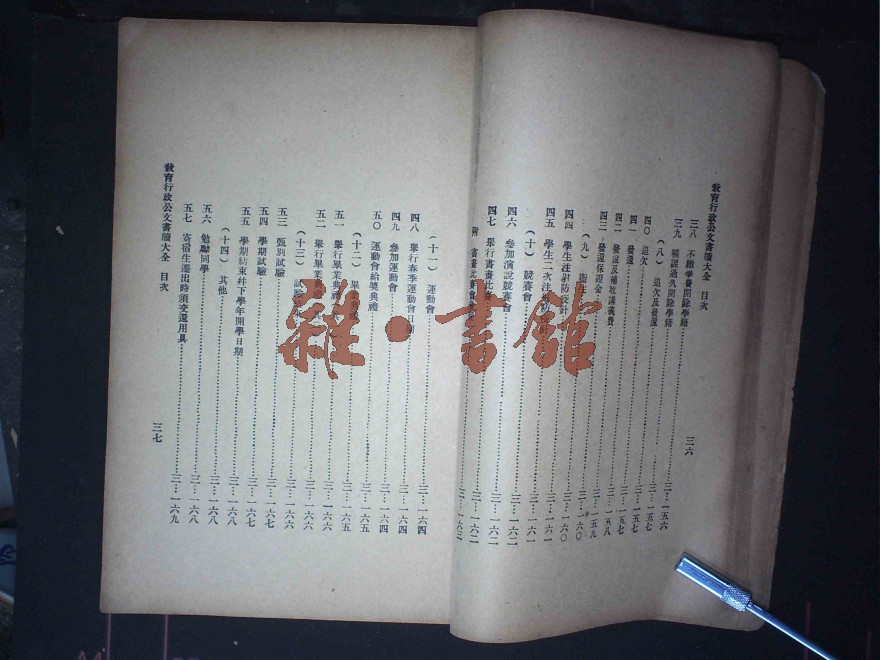 教育行政公文書牘大全 目次
三六
三八 不繳學費開除學籍 三…一五六
三九 曠課過久開除學籍
（八） 追欠及發還
四〇 追欠 三…一五七
四一 發還 三…一五七
四二 發還及補收講義費 三…一五八
四三 發還保證金 三…一五九
（九）
四四 學生注射防疫針 三…一六〇
四五 學生二次注 三…一六一
（十） 競賽會
四六 參加演說競賽會 三…一六二
四七 舉行書畫比賽 三…一六二
附 書畫比賽會 三…一六三
（十一） 運動會
四八 舉行春季運動會日期 三…一六四
四九 參加運動會 三…一六四
五〇 運動會給獎典禮 三…一六五
（十二） 畢業典禮
五一 舉行畢業典禮 三…一六六
五二 舉行畢業典禮 三…一六六
（十三） 試驗
五三 甄別試驗 三…一六六
五四 學期試驗 三…一六七
五五 學期結束幷下學年開學日期 三…一六八
（十四） 其他
五六 勉勵同學 三…一六八
五七 寄宿生遷出時須交還用具 三…一六九
教育行政公文書牘大全 目次
三七
雜·書館